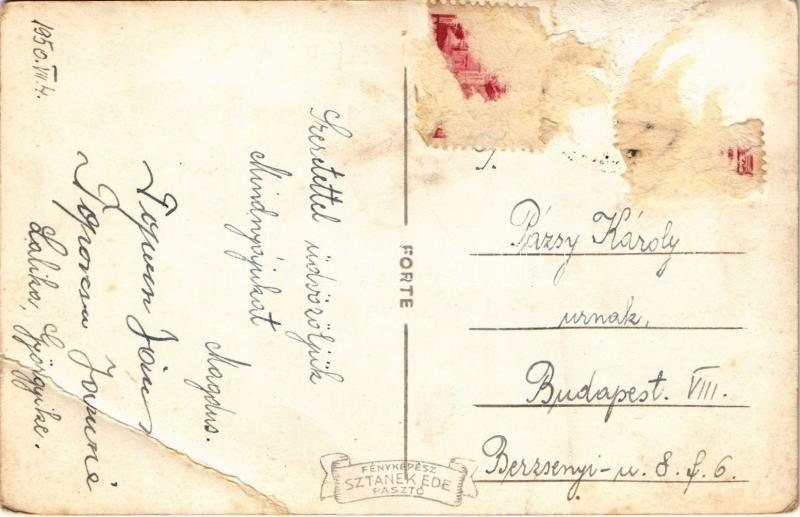 1950. VII. 4.
Szeretettel üdvözöljük
Mindnyájukat
Magdus.
János
Jánosné
Lalika, Györgyike.
FORTE
FÉNYKÉPÉSZ
SZTANEK EDE
PÁSZTÓ
T.
Pázsy Károly
urnak,
Budapest. VIII.
Berzsenyi-u. 8. f. 6.